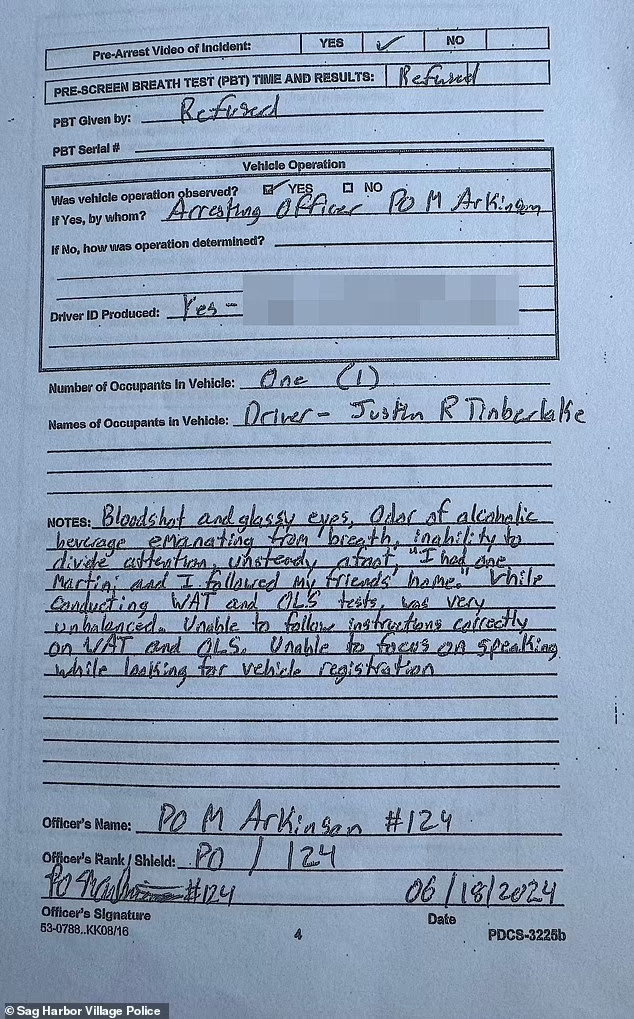 Pre-Arrest Video of Incident: YES ✓ NO
PRE-SCREEN BREATH TEST (PBT) TIME AND RESULTS: Refused
PBT Given by: Refused
PBT Serial #
Vehicle Operation
Was vehicle operation observed? ☑ YES ☐ NO
If Yes, by whom? Arresting Officer PO M Arkinson
If No, how was operation determined?
Driver ID Produced: Yes -
Number of Occupants in Vehicle: One (1)
Names of Occupants in Vehicle: Driver - Justin R Timberlake
NOTES: Bloodshot and glassy eyes, Odor of alcoholic
beverage emanating from breath, inability to
divide attention, unsteady afoot, "I had one
Martini and I followed my friends home." While
conducting WAT and OLS tests, was very
unbalanced. Unable to follow instructions correctly
on WAT and OLS. Unable to focus on speaking
while looking for vehicle registration
Officer's Name: PO M Arkinson #124
Officer's Rank / Shield: PO / 124
PO #124 06/18/2024
Officer's Signature Date
53-0788..KK08/16 4 PDCS-3225b
© Sag Harbor Village Police